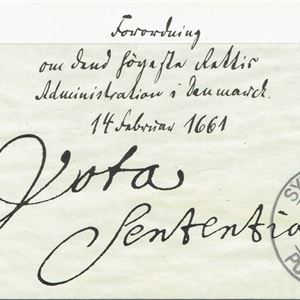 Forordning
om dend högeste Rettis
Administration i Danmarck.
14 Februar 1661
Vota
Sententio
SY
PO